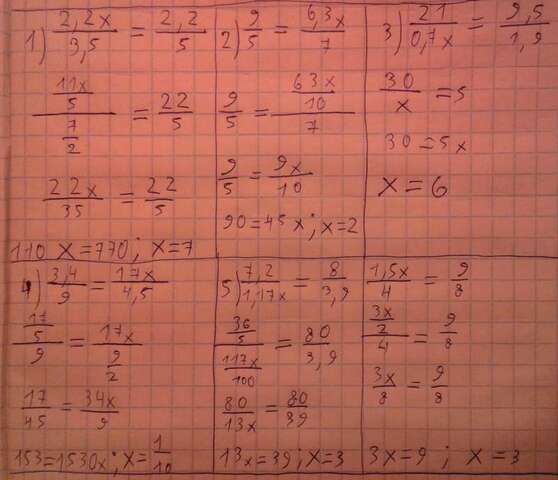 1) 2,2x/3,5 = 2,2/5
11x/5 / 7/2 = 22/5
22x/35 = 22/5
110 x = 770; x=7
2) 9/5 = 6,3x/7
9/5 = 63x/10 / 7
9/5 = 9x/10
90=45x; x=2
3) 21/0,7x = 9,5/1,9
30/x = 5
30=5x
x=6
4) 3,4/9 = 17x/4,5
17/5 / 9 = 17x / 9/2
17/45 = 34x/9
153=1530x; x=1/10
5) 7,2/1,17x = 8/3,9
36/5 / 117x/100 = 80/3,9
80/13x = 80/39
13x=39; x=3
1,5x/4 = 9/8
3x/2 / 4 = 9/8
3x/8 = 9/8
3x=9; x=3